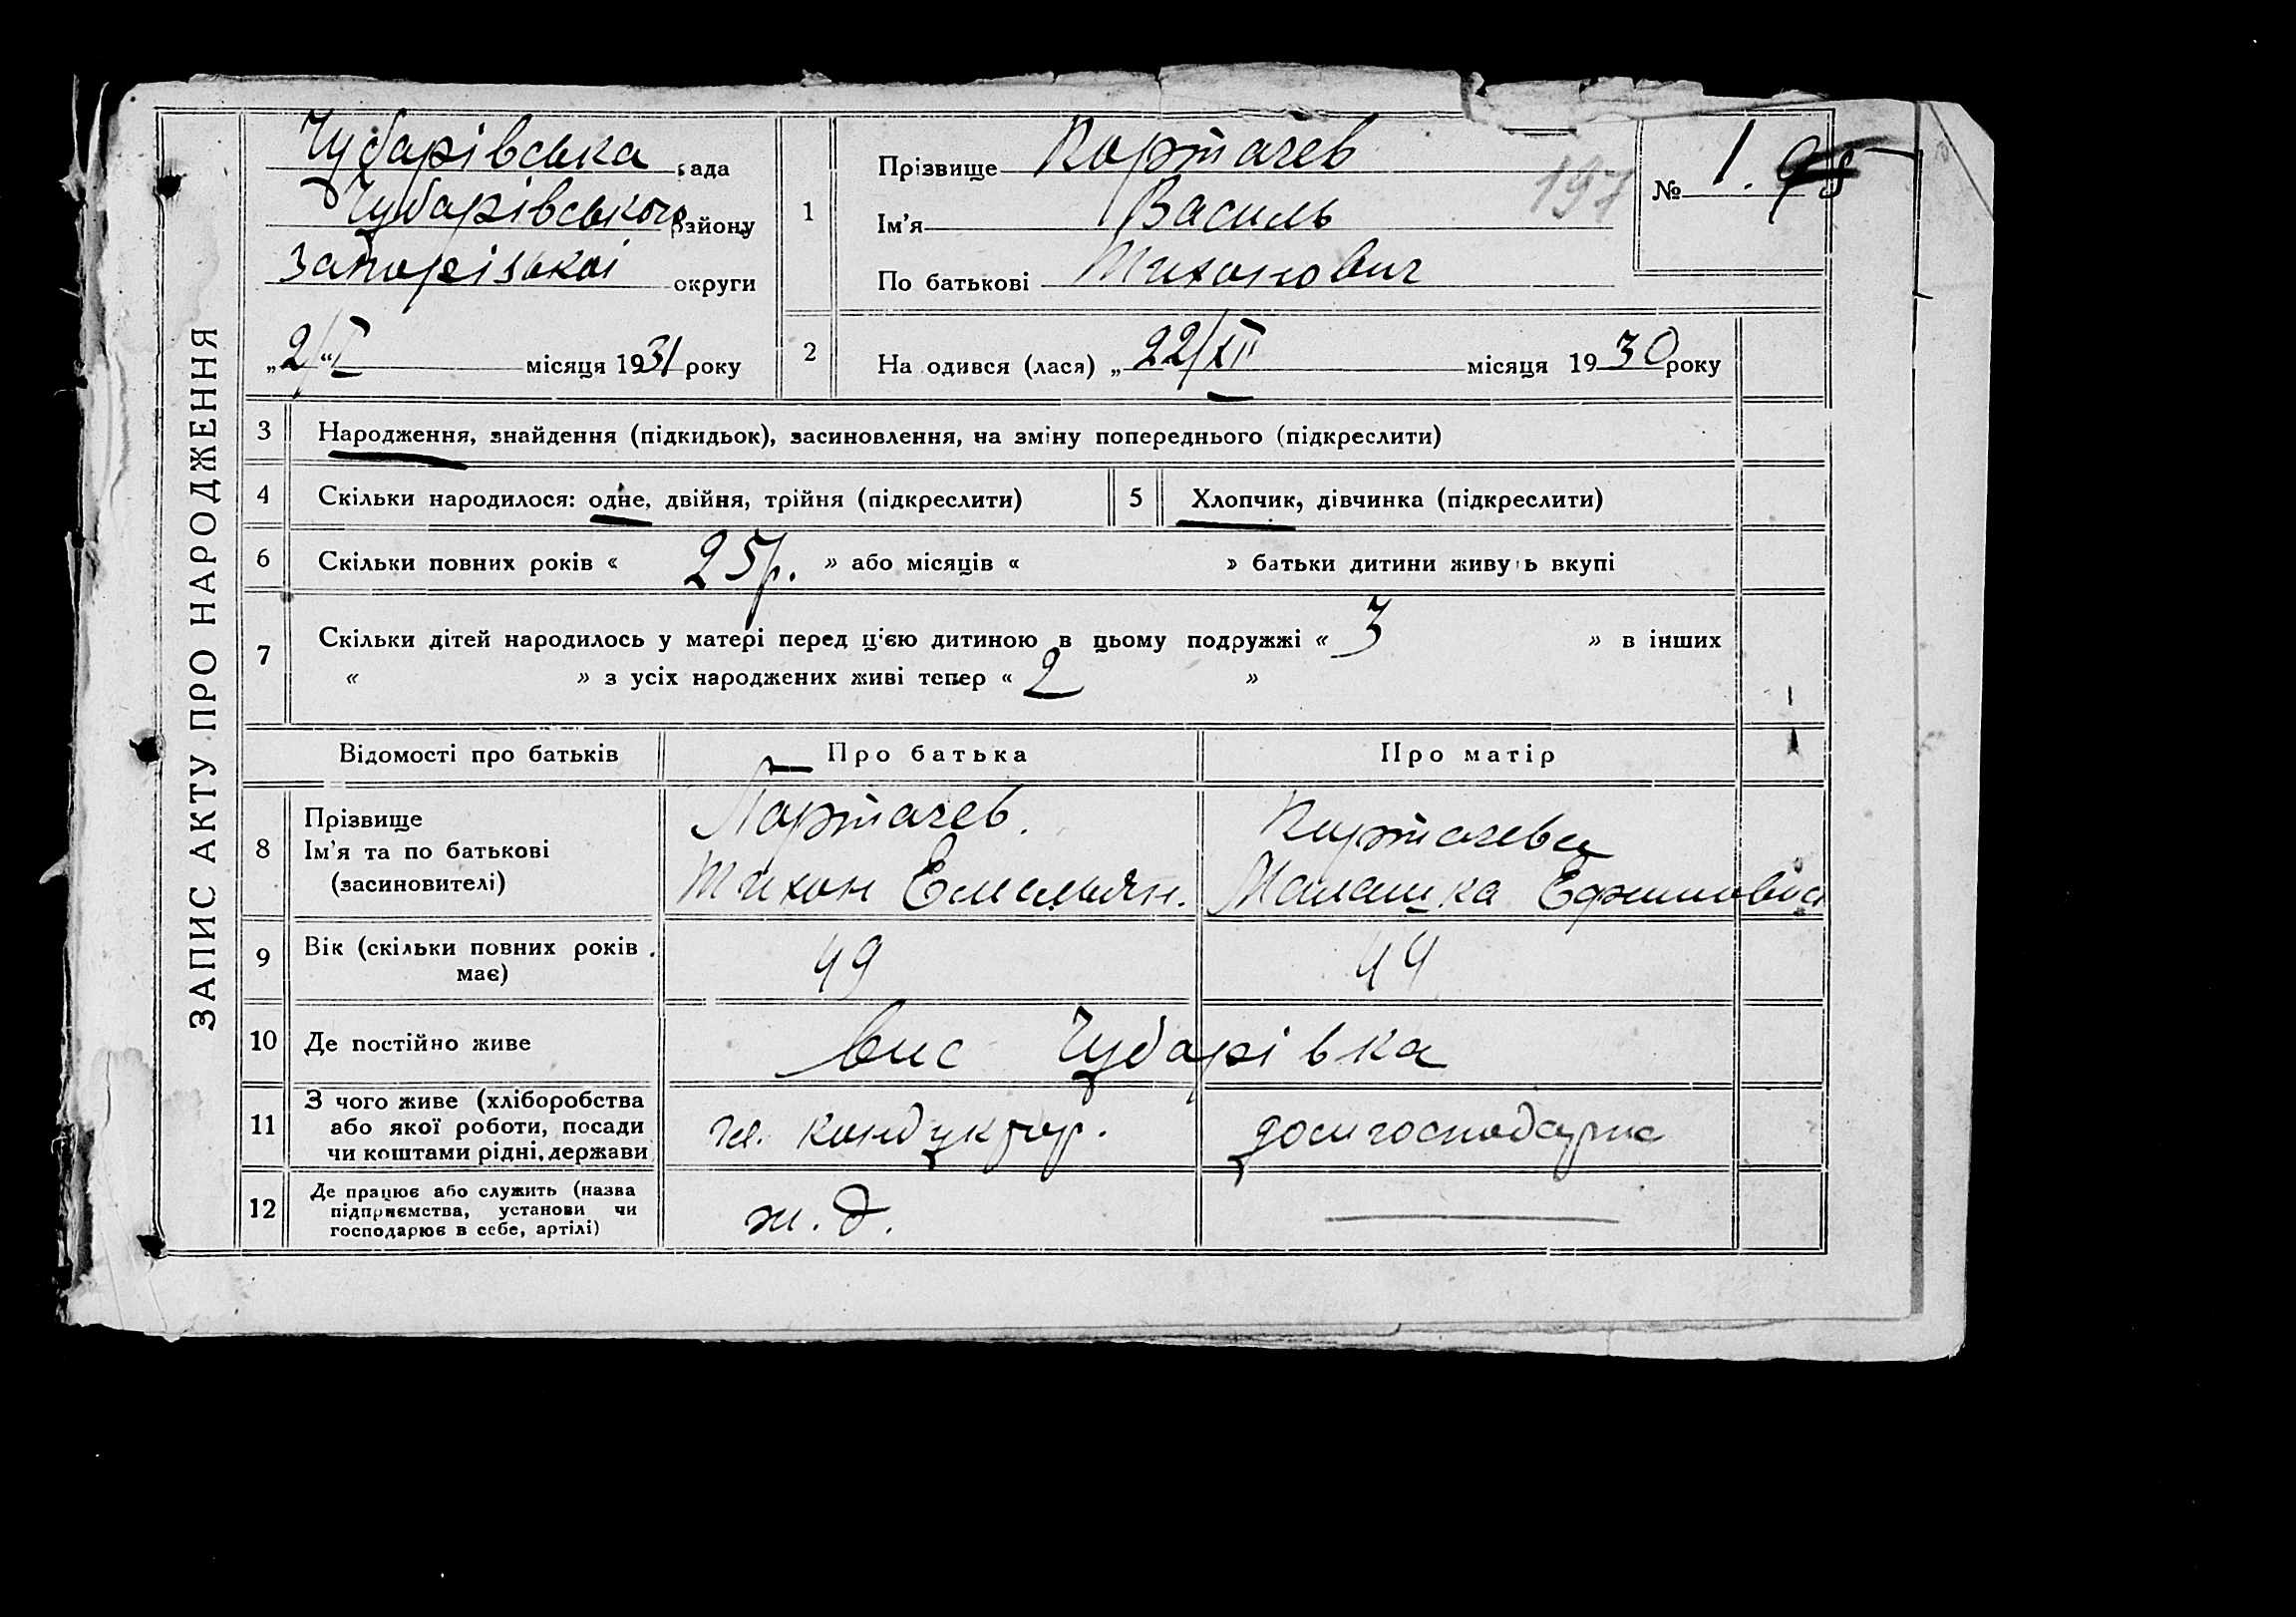 ЗАПИС АКТУ ПРО НАРОДЖЕННЯ
Чубарівська рада
Чубарівського району
Запорізької округи
„2/I" місяця 1931 року
1
Прізвище Портачев
Ім'я Василь
По батькові Тихонович
197
№ 1.
2
На одився (лася) „22/XII місяця 1930 року
3 Народження, знайдення (підкидьок), засиновлення, на зміну попереднього (підкреслити)
4 Скільки народилося: одне, двійня, трійня (підкреслити) 5 Хлопчик, дівчинка (підкреслити)
6 Скільки повних років « 25 р. » або місяців « » батьки дитини живуть вкупі
7 Скільки дітей народилось у матері перед цією дитиною в цьому подружжі « 3 » в інших
« » з усіх народжених живі тепер « 2 »
Відомості про батьків Про батька Про матір
8 Прізвище
Ім'я та по батькові
(засиновителі)
Портачев.
Тихон Емельян.
Портачева
Малашка Ефимовна
9 Вік (скільки повних років має) 49 44
10 Де постійно живе вис Чубарівка
11 З чого живе (хліборобства
або якої роботи, посади
чи коштами рідні, держави
гл. кондуктор. домгосподарка
12 Де працює або служить (назва
підприємства, установи чи
господарює в себе, артілі)
ж. д.